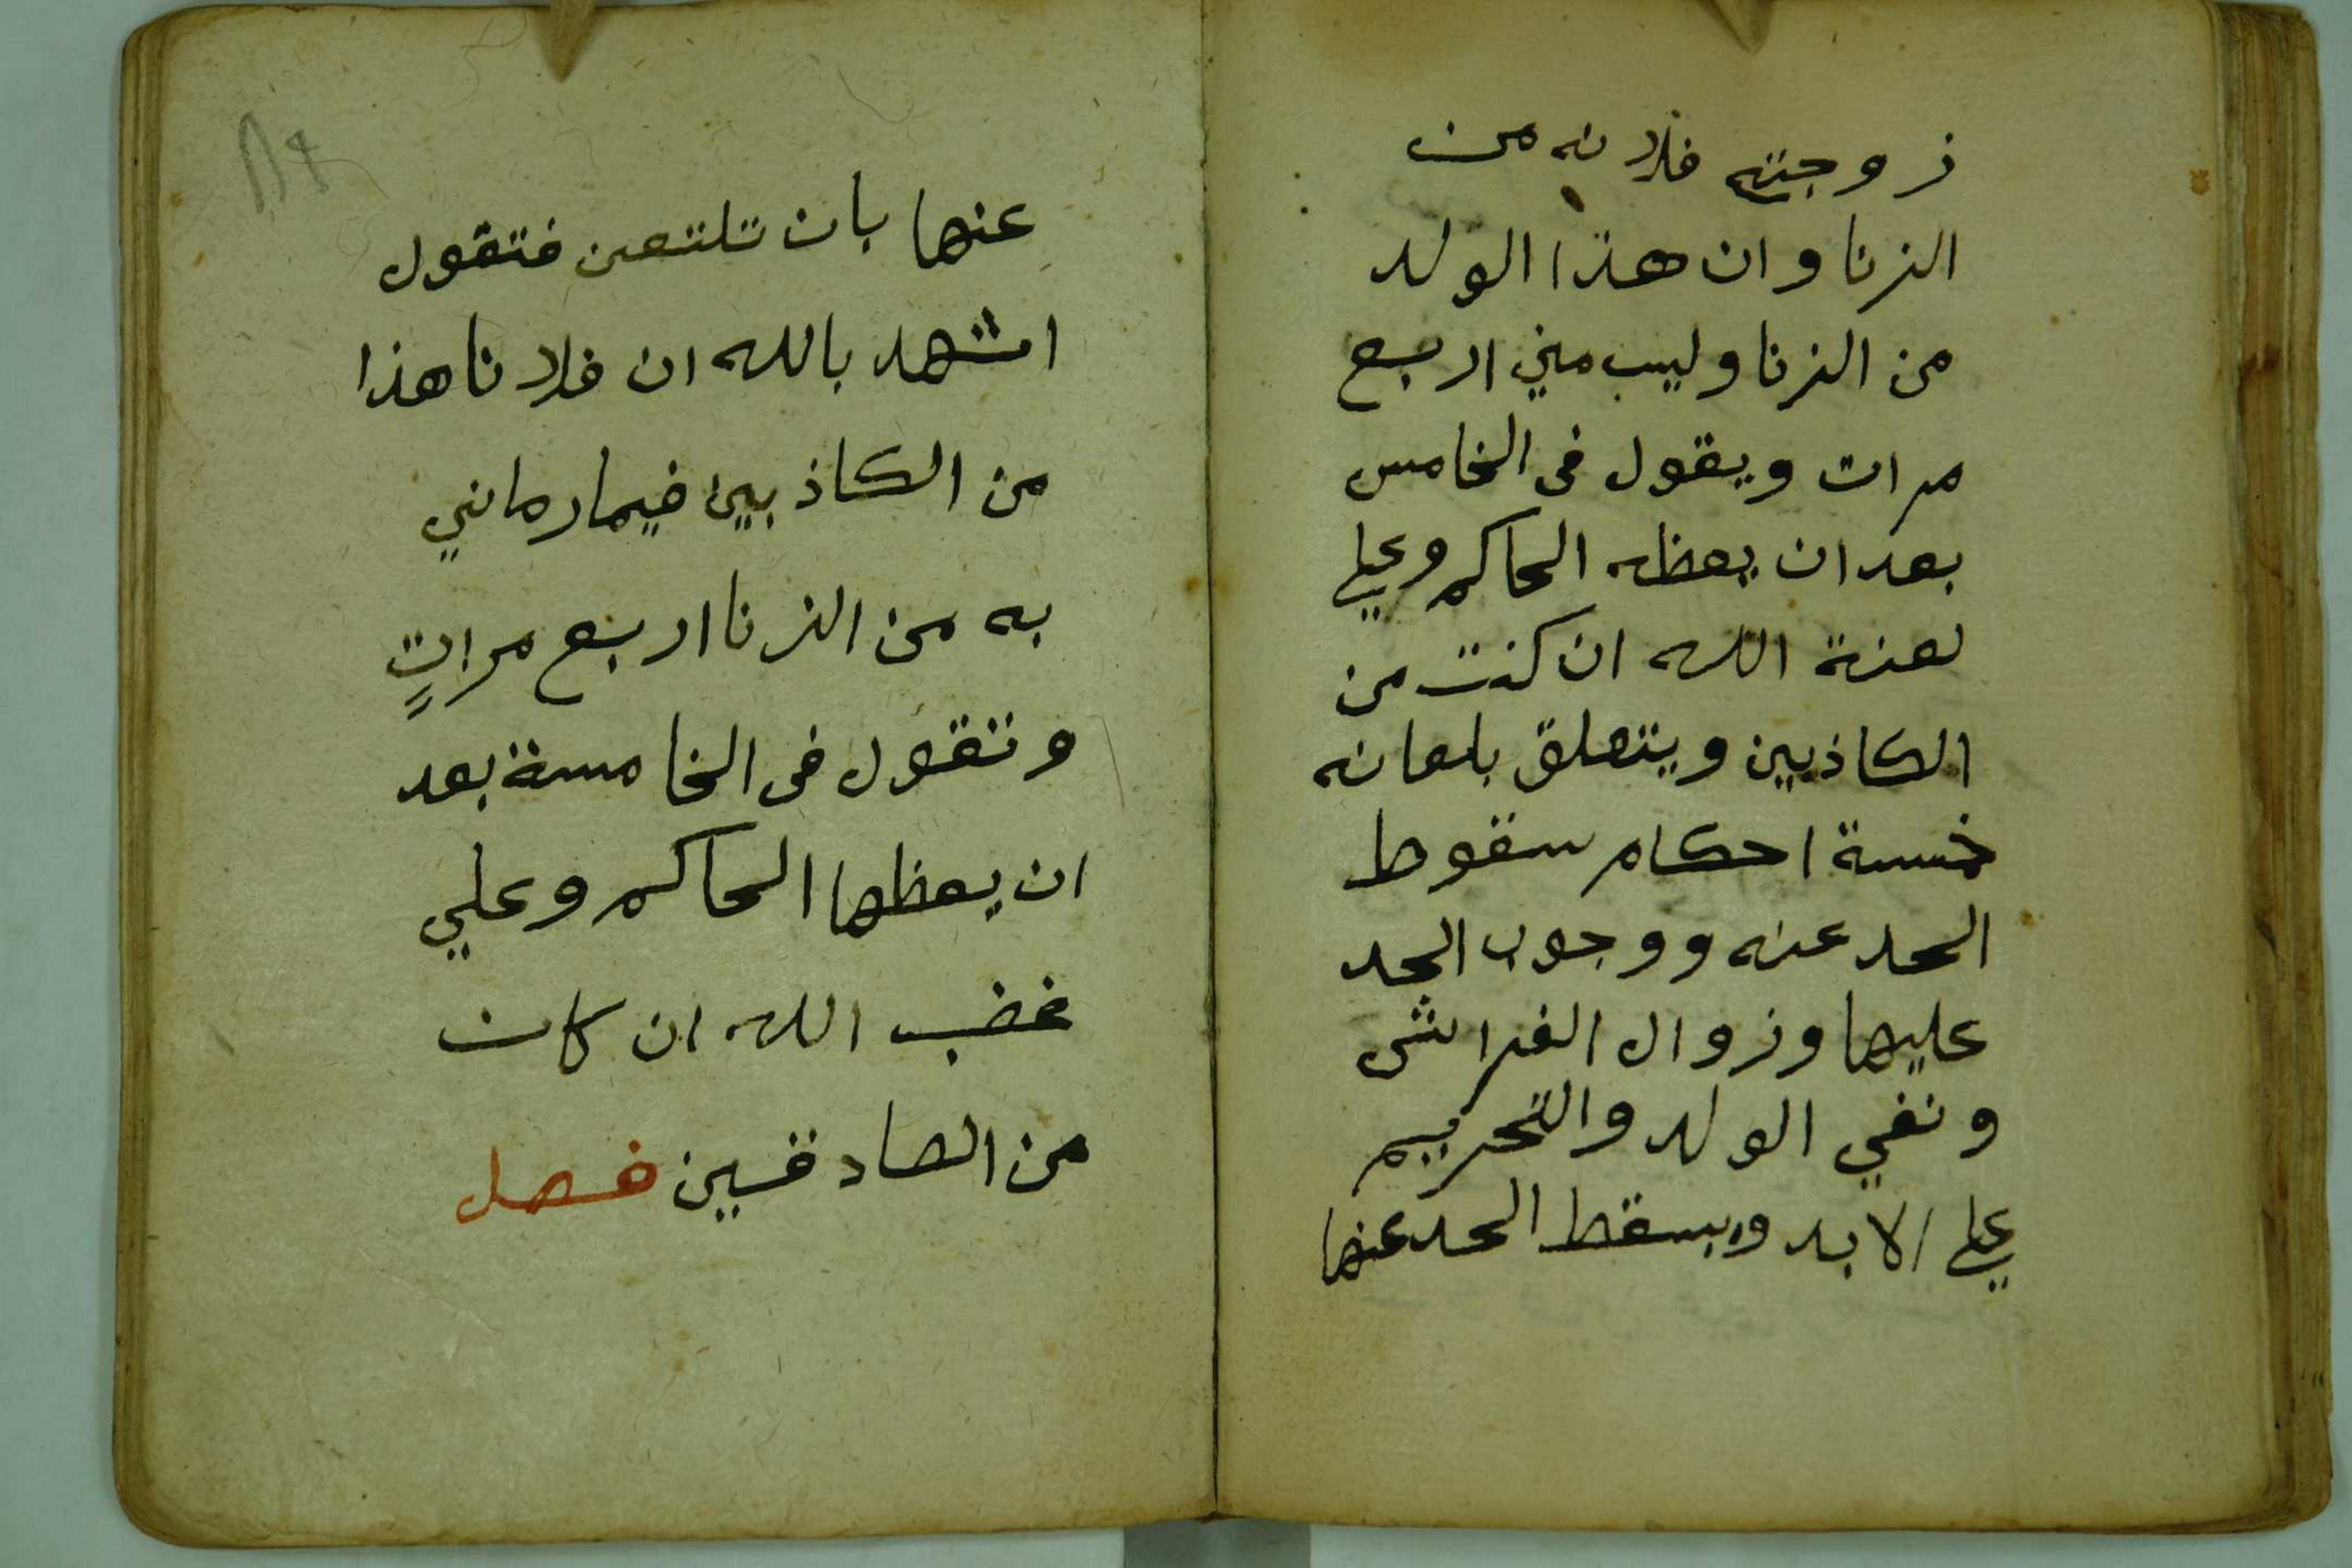 زوجته فلانه من
الزنا وان هذا الولد
من الزنا وليس مني اربع
مرات ويقول فى الخامس
بعد ان يعظه الحاكم وعلي
لعنة الله ان كنت من
الكاذبين ويتعلق بلعانه
خمسة احكام سقوط
الحد عنه ووجوب الحد
عليها وزوال الفراش
ونفي الولد والتحريم
علي الابد ويسقط الحد عنها
عنها بان تلتعن فتقول
اشهد بالله ان فلانا هذا
من الكاذبين فيما رماني
به من الزنا اربع مراتٍ
وتقول فى الخامسة بعد
ان يعظها الحاكم وعلي
غضب الله ان كان
من الصادقين فصل